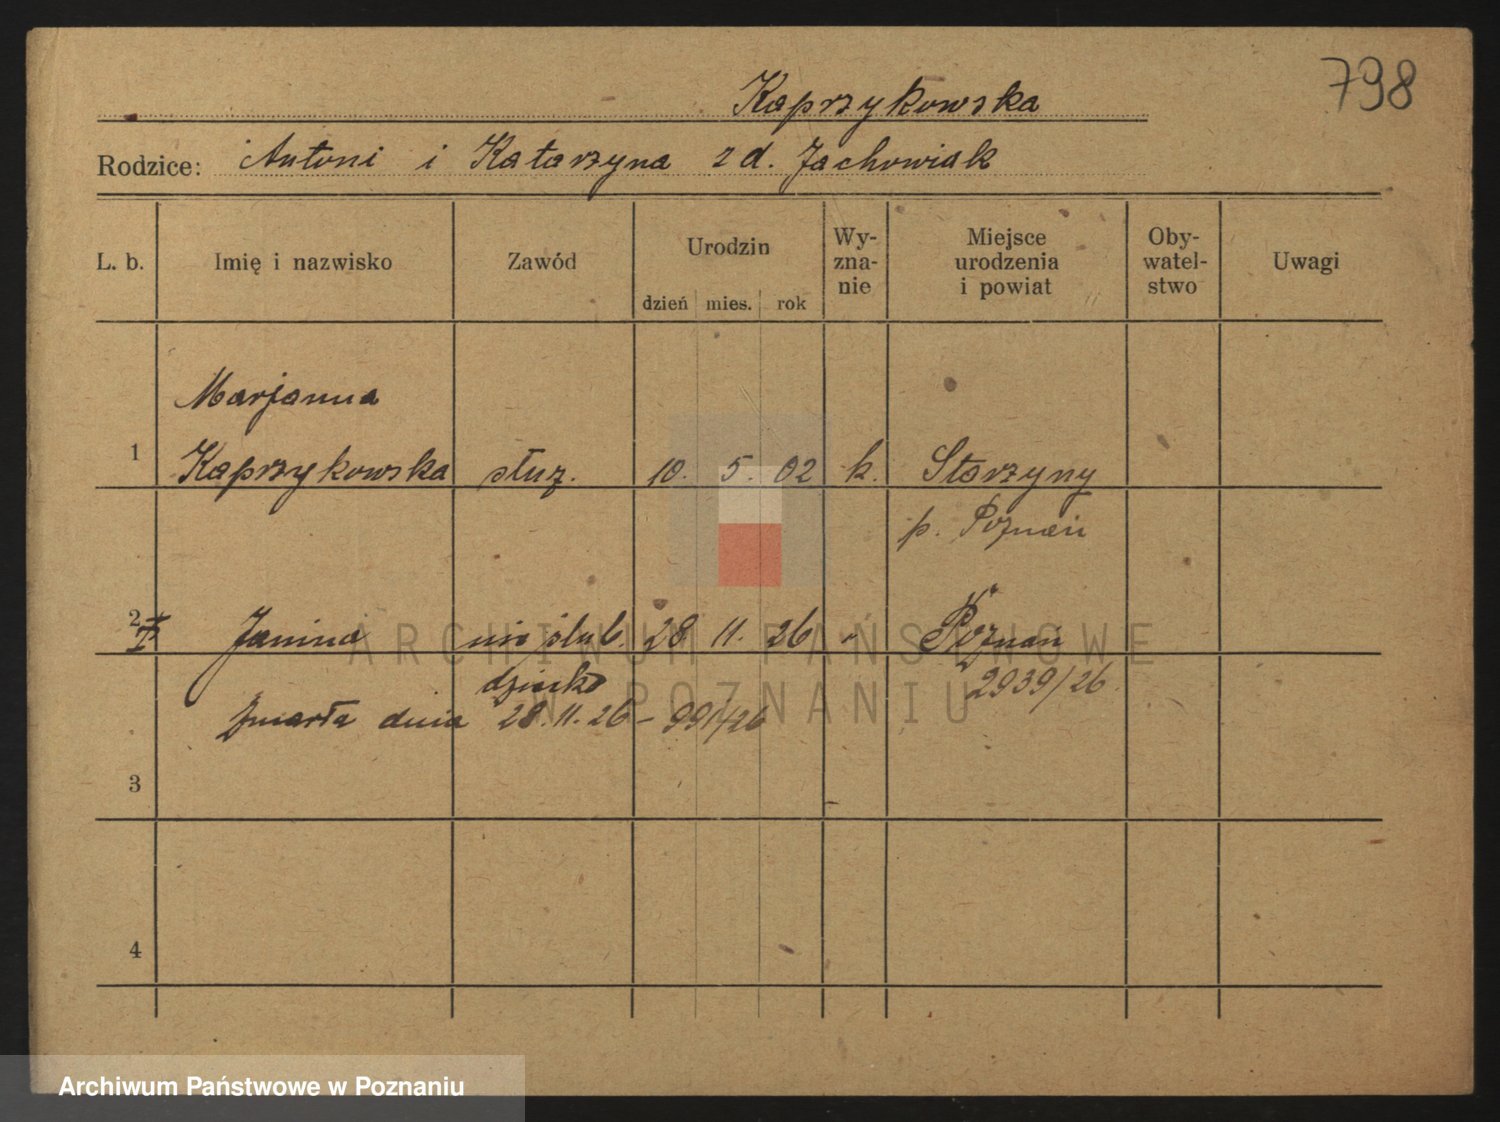 798
Kaprzykowska
Rodzice: Antoni i Katarzyna z d. Jachowiak
L. b. Imię i nazwisko Zawód Urodzin dzień mies. rok Wy-zna-nie Miejsce urodzenia i powiat Oby-watel-stwo Uwagi
Marjanna
1 Kaprzykowska służ. 10. 5. 02 k. Starzyny
p. Poznań
2 Janina nieślub. 28 11. 26 " Poznań
dziecko 2939/26
zmarła dnia 28.11.26 – 991/26
3
4
ARCHIWUM PAŃSTWOWE
W POZNANIU
Archiwum Państwowe w Poznaniu